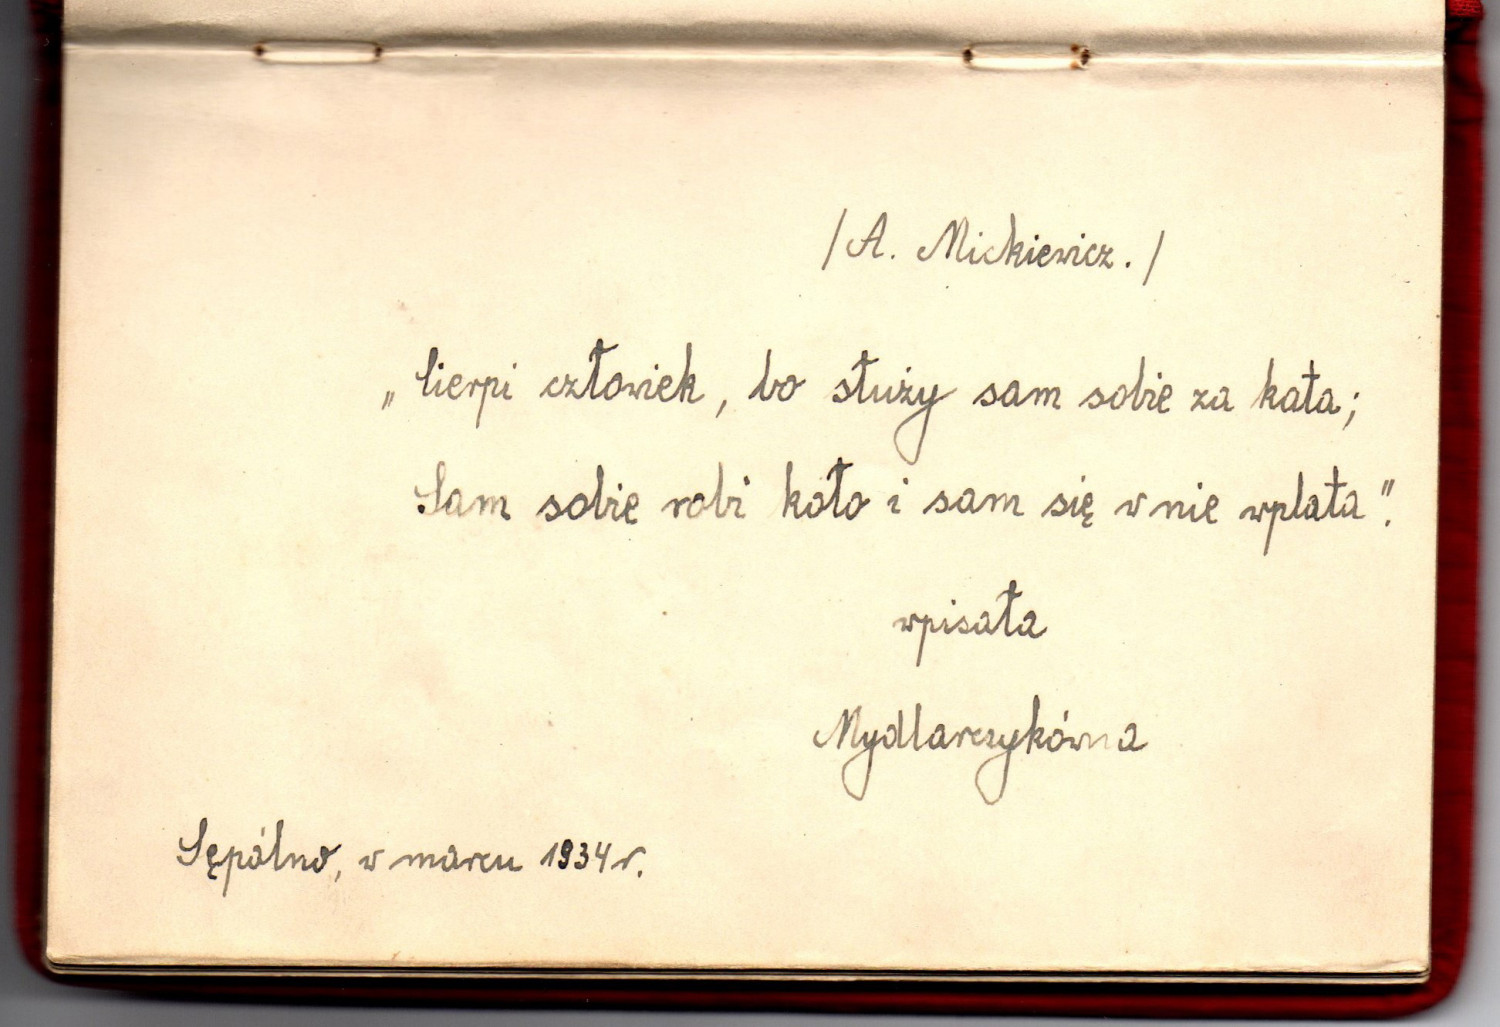 /A. Mickiewicz./
„Cierpi człowiek, bo służy sam sobie za kata;
Sam sobie robi koło i sam się w nie wplata”.
wpisała
Mydlarczykówna
Sępólno, w marcu 1934 r.